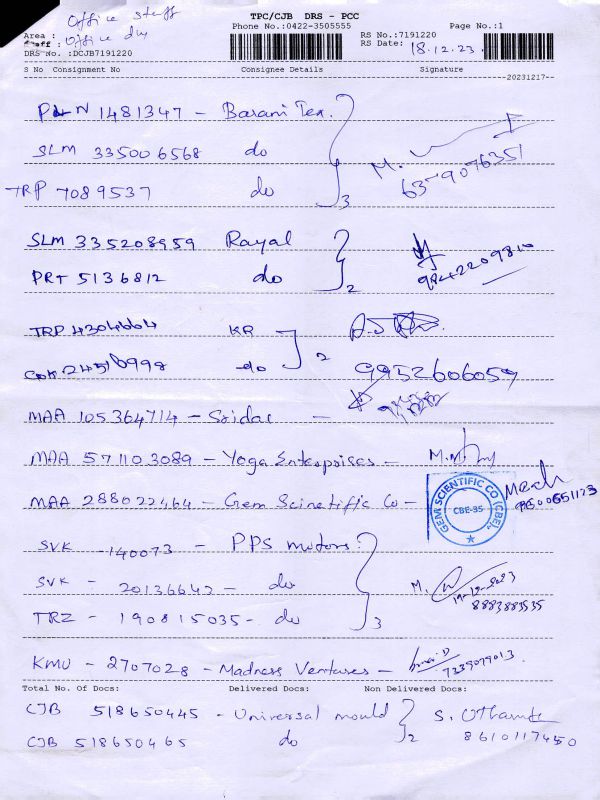 Office staff
TPC/CJB DRS - PCC
Phone No.:0422-3505555
Page No.:1
Area :
Staff : Office
RS No.:7191220
RS Date: 18.12.23
DRS No. :DCJB7191220
S No Consignment No Consignee Details Signature
20231217--
PLN 1481347 - Barani Tex.
SLM 335006568 do
M.
6379076351
TRP 7089537 do 3
SLM 335208959 Rayal
PRT 5136812 do 2
9842209810
TRP 4304664 KR
do 2
9952606059
MAA 105364714 - Sridar -
MAA 571103089 - Yoga Enterprises -
MAA 288022464 - Gem Scinetific Co -
GEM SCIENTIFIC CO (CBE).
CBE-35
SVK - 140073 - PPS motors.
SVK - 20136642 - do
M.
8883883535
TRZ - 190815035 - do 3
KMU - 2707028 - Madness Ventures -
7339079013
Total No. Of Docs: Delivered Docs: Non Delivered Docs:
CJB 518650445 - Universal mould
S.
CJB 518650465 do 2
8610117450